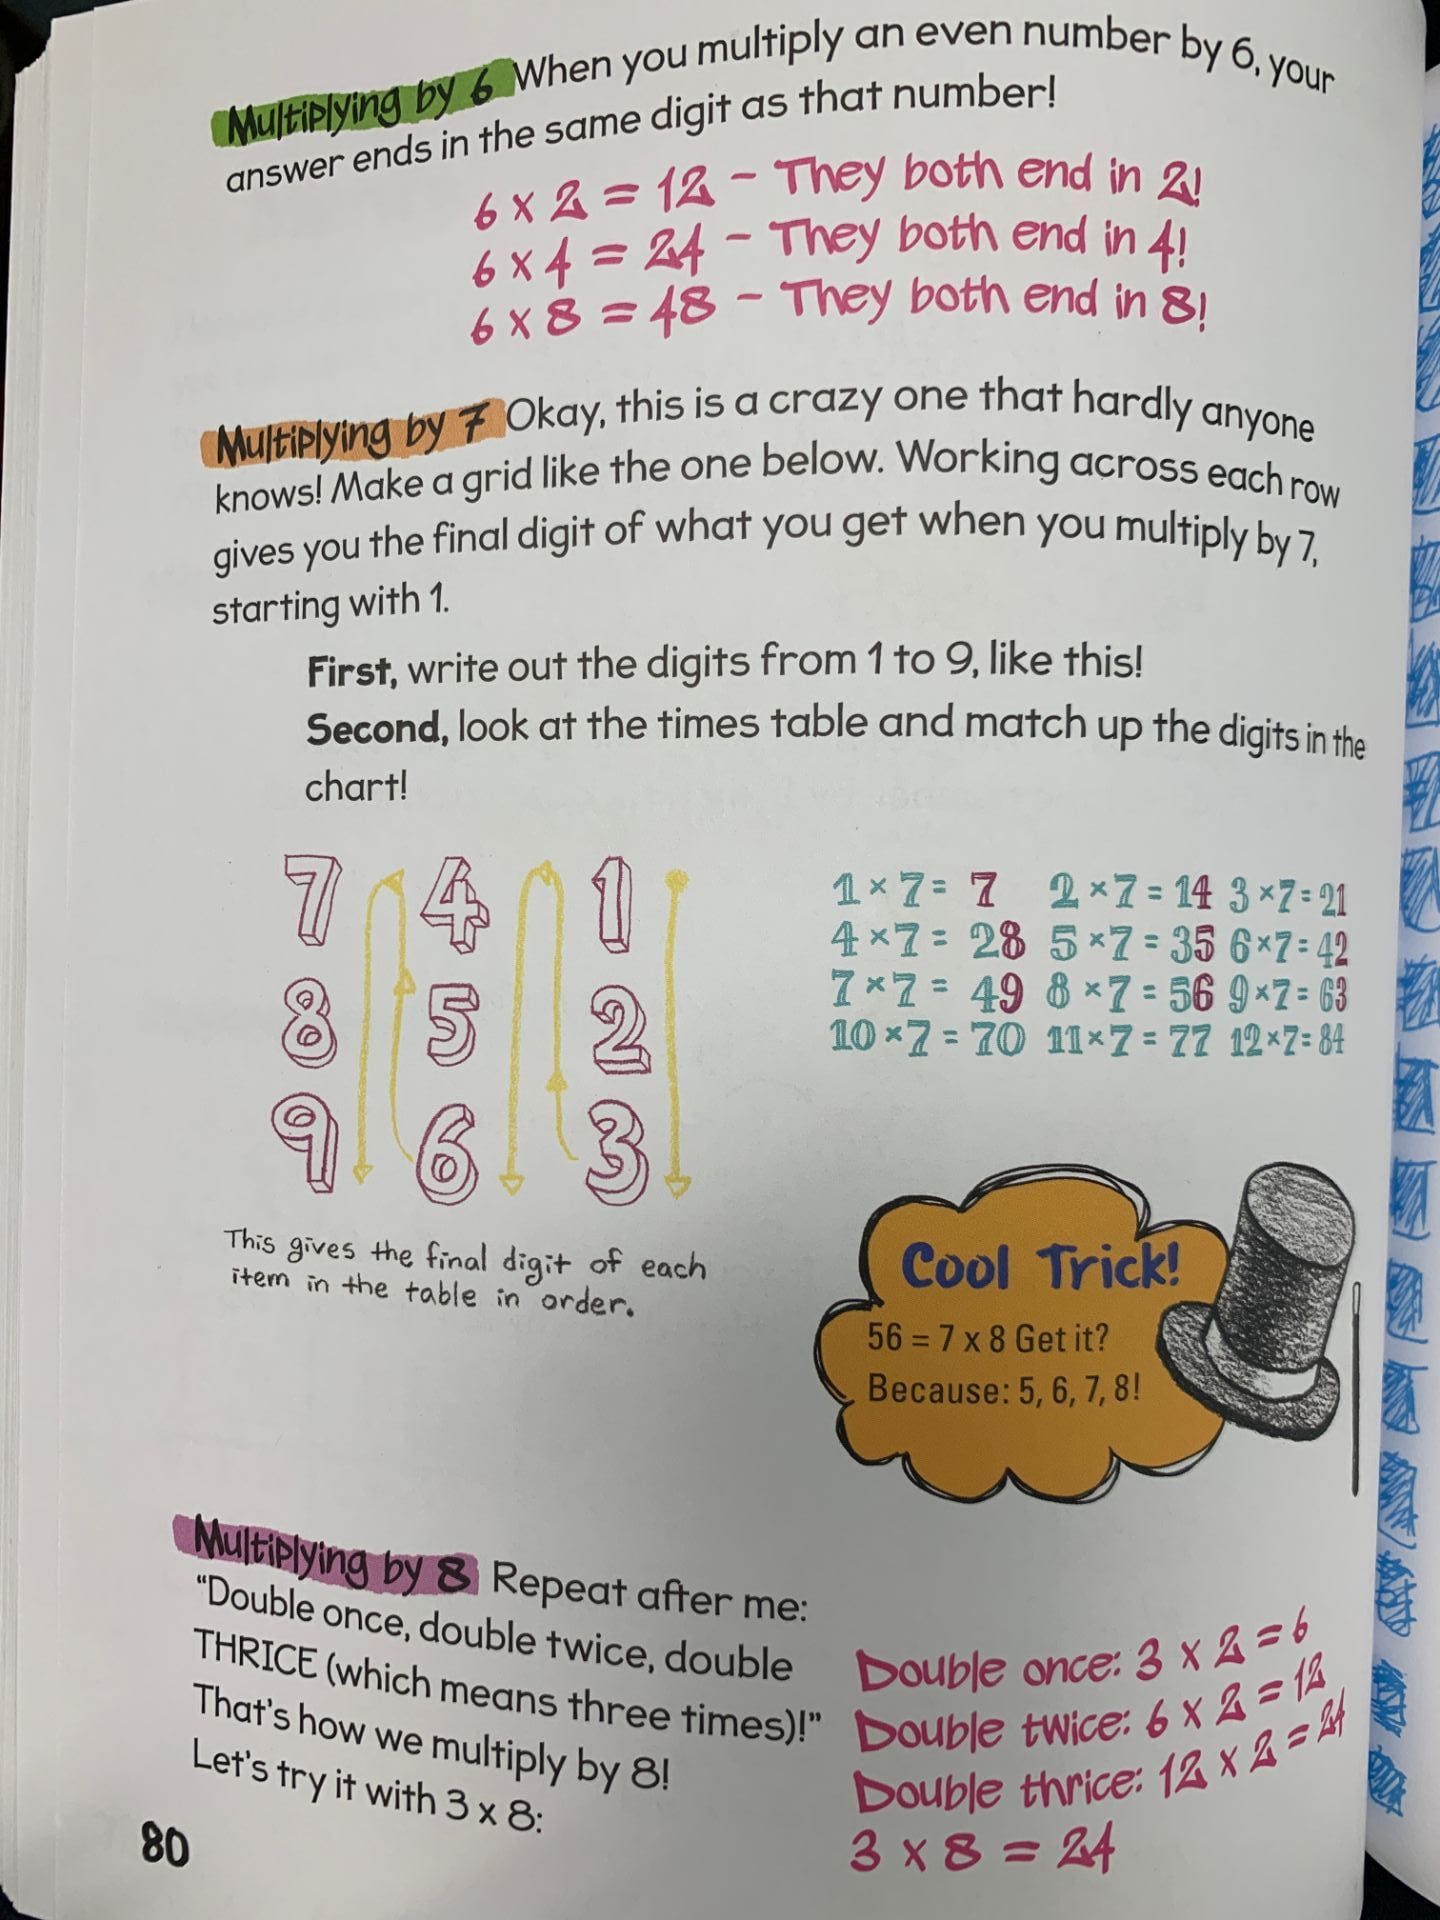 Multiplying by 6 When you multiply an even number by 6, your
answer ends in the same digit as that number!
6 x 2 = 12 - They both end in 2!
6 x 4 = 24 - They both end in 4!
6 x 8 = 48 - They both end in 8!
Multiplying by 7 Okay, this is a crazy one that hardly anyone
knows! Make a grid like the one below. Working across each row
gives you the final digit of what you get when you multiply by 7,
starting with 1.
First, write out the digits from 1 to 9, like this!
Second, look at the times table and match up the digits in the
chart!
7 4 1
8 5 2
9 6 3
This gives the final digit of each
item in the table in order.
1 × 7 = 7 2 × 7 = 14 3 × 7 = 21
4 × 7 = 28 5 × 7 = 35 6 × 7 = 42
7 × 7 = 49 8 × 7 = 56 9 × 7 = 63
10 × 7 = 70 11 × 7 = 77 12 × 7 = 84
Cool Trick!
56 = 7 x 8 Get it?
Because: 5, 6, 7, 8!
Multiplying by 8 Repeat after me:
“Double once, double twice, double
THRICE (which means three times)!”
That's how we multiply by 8!
Let's try it with 3 x 8:
Double once: 3 x 2 = 6
Double twice: 6 x 2 = 12
Double thrice: 12 x 2 = 24
3 x 8 = 24
80